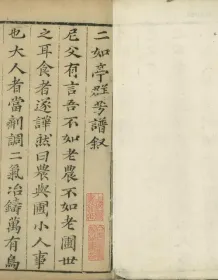 二如亭群芳譜叙
尼父有言吾不如老農不如老圃世
之耳食者遂謂然曰農與圃小人事
也大人者當劑調二氣冶鑄萬有烏